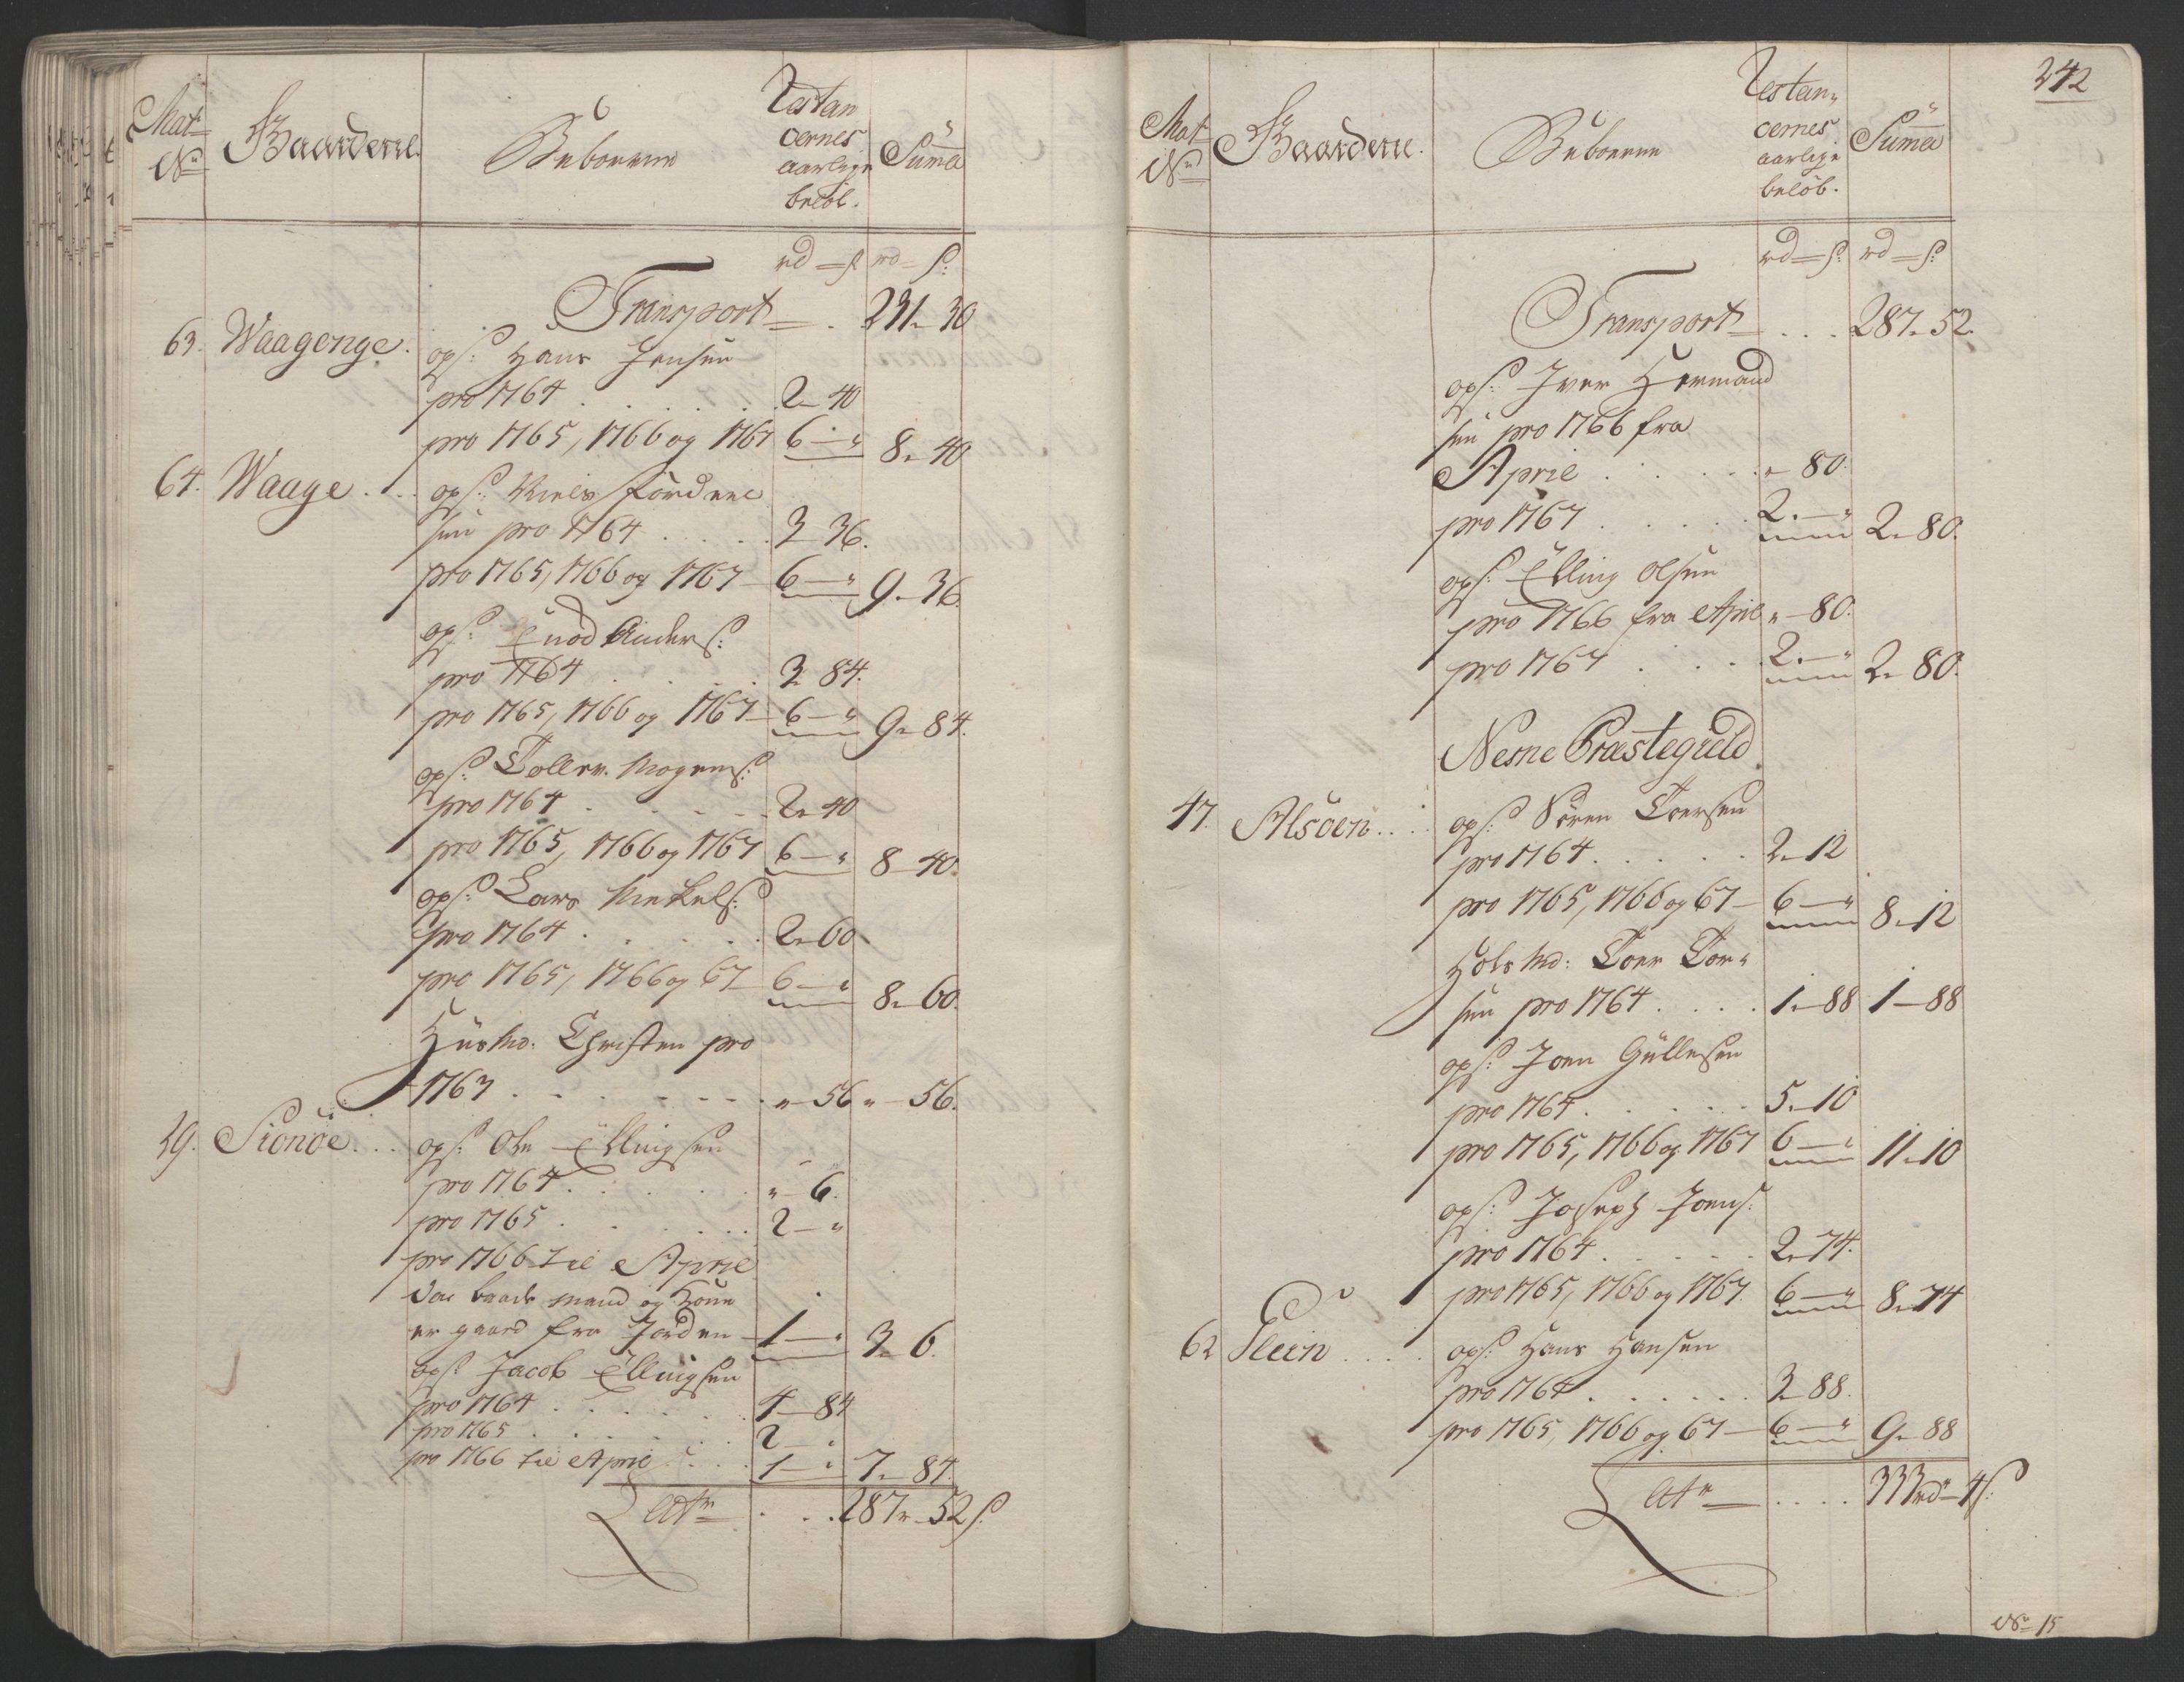 Mat
No
Gaardene
Beboerne
Restan
cernes
aarlige
beløb.
Suma
rd = ß rd = ß:
Transport . 231. 30
63. Waagenge. ops: Hans Jensen
pro 1764 . . . . . . 2 40
pro 1765, 1766 og 1767 6 — " 8. 40
64. Waage . . ops: Niels
sen pro 1764 . . . . . 3 36.
pro 1765, 1766 og 1767 — 6 — " 9. 36.
ops: Enod Anders:
pro 1764 . . . . . 3 84.
pro 1765, 1766 og 1767 — 6 — " 9. 84.
ops: Toller. Mogens:
pro 1764 . . . . . 2. 40
pro 1765, 1766 og 1767 6 — " 8 40.
ops: Lars Mekels:
pro 1764 . . . . . 2. 60.
pro 1765, 1766 og 67 — 6 — " 8. 60.
Husmd. Christen pro
1763 . . . . . . " 56 " — 56.
29. Sionøe . . . ops: Ole Ellingsen
pro 1764 . . . . . " 6.
pro 1765 . . . . . 2 — "
pro 1766 til April
da baade mand og Kone
er gaaed fra Jorden — 1 — " 3. 6.
ops: Jacob Ellingsen
pro 1764 . . . . . 4 — 84
pro 1765 . . . . . 2 — "
pro 1766 til April . . . 1 — " 7. 84.
Latr . . . 287. 52 ß:
242
Mat
No
Gaardene.
Beboerne
Restan"
cernes
aarlige
beløb.
Suma
rd = ß: rd = ß:
Transport . . . 287. 52.
ops: Iver Hermand
sen pro 1766 fra
April . . . . . " 80.
pro 1767 . . . . . 2. — " 2. 80.
ops: Elling Olsen
pro 1766 fra April " — 80.
pro 1767 . . . . 2. — " 2. 80.
Nesne Præstegield
47. Alsøen . . . ops: Søren Toersen
pro 1764 . . . . . 2. 12
pro 1765, 1766 og 67 — 6 — " 8. 12
Huusmd: Toer Tor"
sen pro 1764 . . . . 1. — 88 1 — 88
ops: Joen Gullesen
pro 1764 . . . . . 5. 10
pro 1765, 1766 og 1767 6 — " 11. 10
ops: Joseph Joens:
pro 1764 . . . . . 2. 74.
pro 1765, 1766 og 1767. 6 — " 8. 74
62 Slein . . . . ops: Hans Hansen
pro 1764 . . . . . . 3 88.
pro 1765, 1766 og 67 — 6 — " 9. 88
Latr . . . . 333 rd 4 ß:
No 15